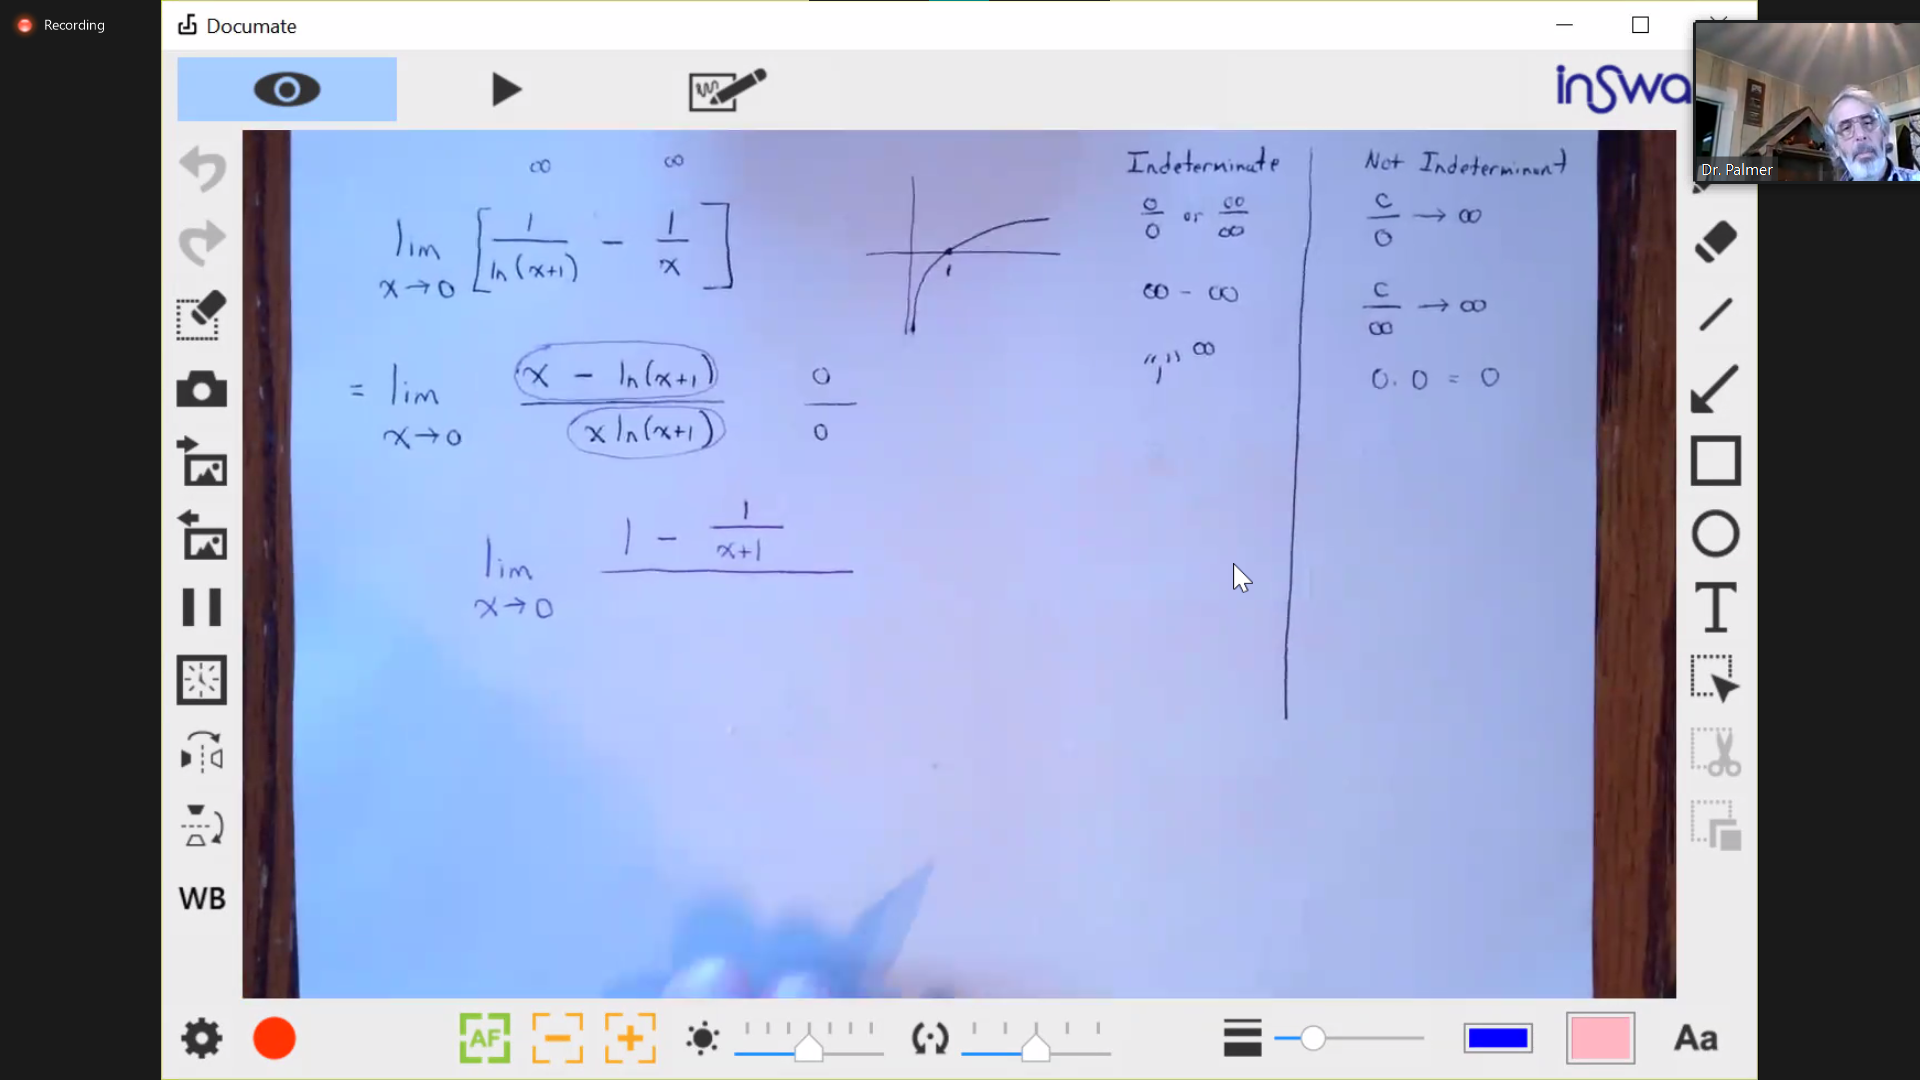 Recording
Documate
inSwa
Dr. Palmer
∞ ∞
lim x→0 [ 1/ln(x+1) − 1/x ]
1
= lim x→0 (x − ln(x+1))/(x ln(x+1)) 0/0
lim x→0 1 − 1/(x+1)
Indeterminate
0/0 or ∞/∞
∞ − ∞
"1" ∞
Not Indeterminant
c/0 → ∞
c/∞ → ∞
0.0 = 0
T
WB
AF
Aa